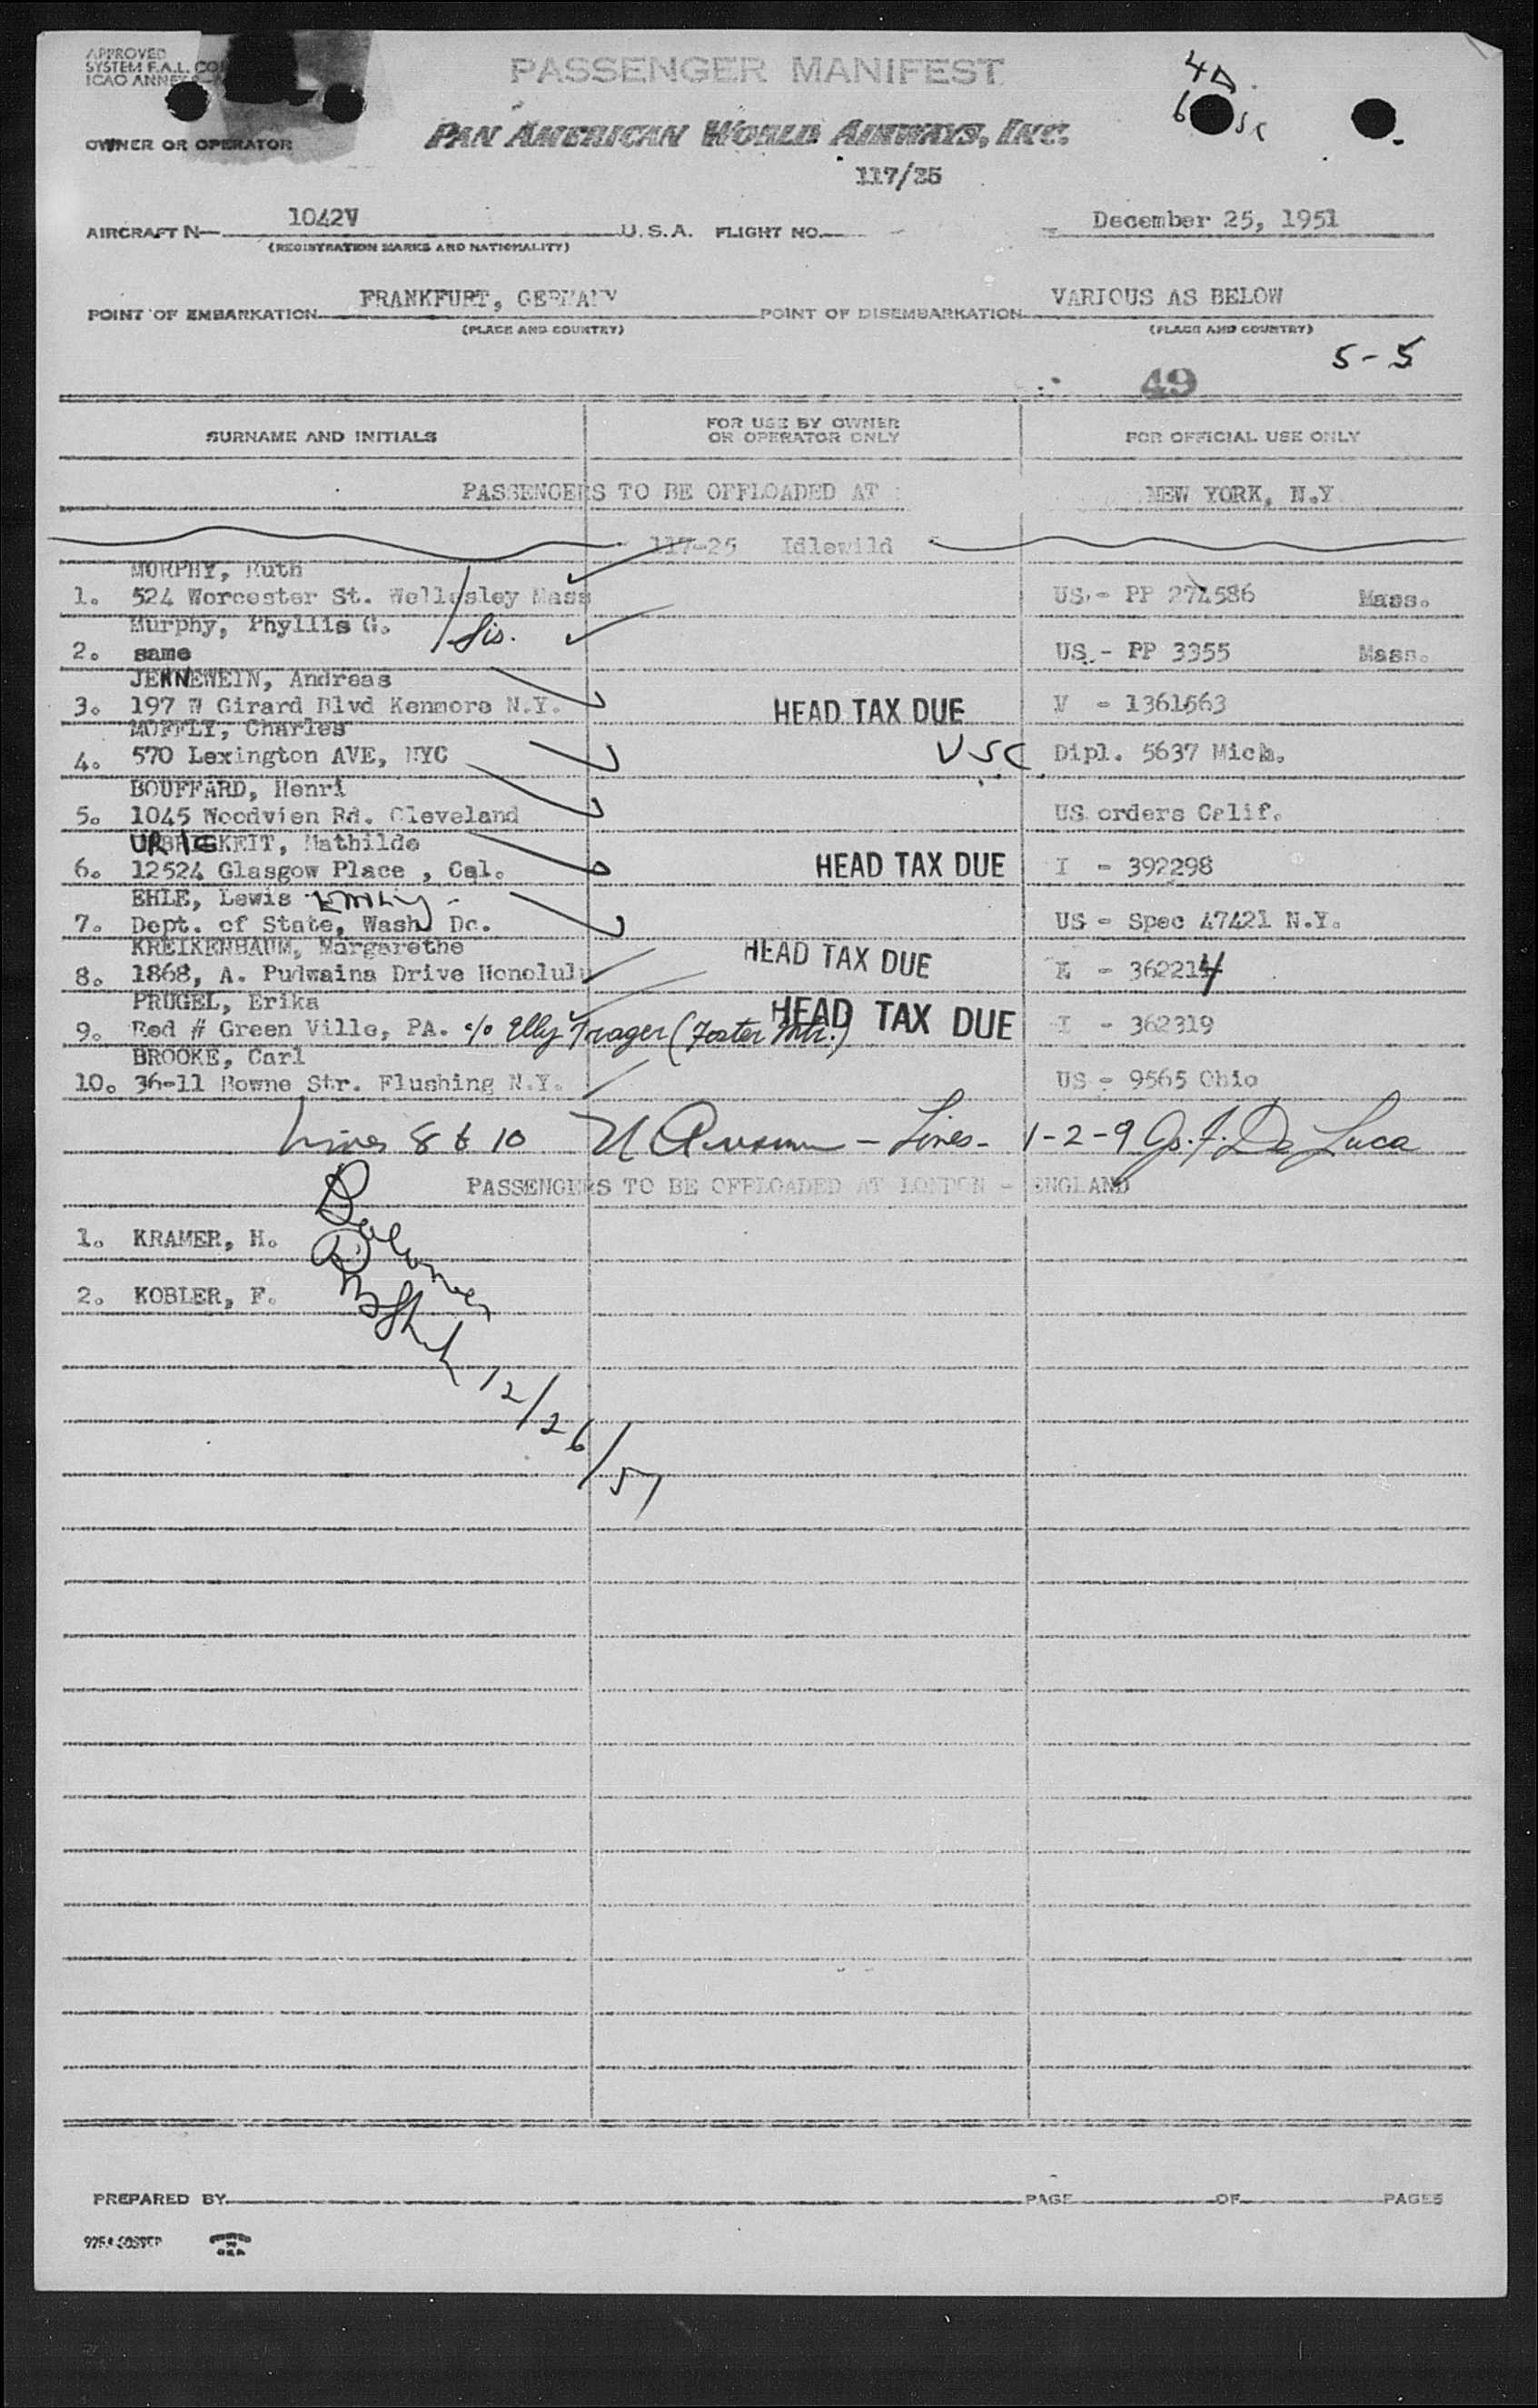 APPROVED
SYSTEM F.A.L. CO
ICAO ANNEX
PASSENGER MANIFEST
4A.
6 USC
OWNER OR OPERATOR
PAN AMERICAN WORLD AIRWAYS, INC.
117/25
AIRCRAFT N— 1042V U.S.A. FLIGHT NO. December 25, 1951
(REGISTRATION MARKS AND NATIONALITY)
POINT OF EMBARKATION FRANKFURT, GERMANY POINT OF DISEMBARKATION VARIOUS AS BELOW
(PLACE AND COUNTRY) (PLACE AND COUNTRY)
5-5
49
SURNAME AND INITIALS FOR USE BY OWNER OR OPERATOR ONLY FOR OFFICIAL USE ONLY
PASSENGERS TO BE OFFLOADED AT : NEW YORK, N.Y
117-25 Idlewild
MURPHY, Ruth
1. 524 Worcester St. Wellesley Mass US - PP 274586 Mass.
Murphy, Phyllis G. Sis.
2. same US - PP 3355 Mass.
JENNEWEIN, Andreas
3. 197 W Girard Blvd Kenmore N.Y. HEAD TAX DUE V - 1361563
MOFFLY, Charles
4. 570 Lexington AVE, NYC USC Dipl. 5637 Mich.
BOUFFARD, Henri
5. 1045 Woodvien Rd. Cleveland US orders Calif.
URBIGKEIT, Mathilde
6. 12524 Glasgow Place , Cal. HEAD TAX DUE I - 392298
EHLE, Lewis Emily -
7. Dept. of State, Wash Dc. US - Spec 47421 N.Y.
KREIKENBAUM, Margarethe
8. 1868, A. Pudwaina Drive Honolulu HEAD TAX DUE I - 362214
PRUGEL, Erika
9. Red # Green Ville, PA. c/o Elly Trager (Foster Mtr.) HEAD TAX DUE I - 362319
BROOKE, Carl
10. 36-11 Bowne Str. Flushing N.Y. US - 9565 Ohio
Lines 8 & 10 - Lines - 1-2-9 Gs. F. De Luca
PASSENGERS TO BE OFFLOADED AT LONDON - ENGLAND
1. KRAMER, H.
2. KOBLER, F.
Balance
12/26/51
PREPARED BY PAGE OF PAGES
PRINTED IN U.S.A.